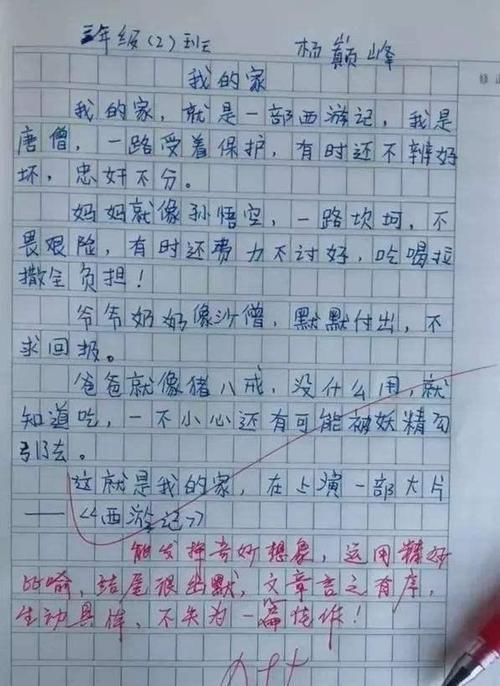 三年级(2)班 杨巅峰
我的家
我的家，就是一部西游记，我是
唐僧，一路受着保护，有时还不辨好
坏，忠奸不分。
妈妈就像孙悟空，一路坎坷，不
畏艰险，有时还费力不讨好，吃喝拉
撒全负担！
爷爷奶奶像沙僧，默默付出，不
求回报。
爸爸就像猪八戒，没什么用，就
知道吃，一不小心还有可能被妖精勾
引了去。
这就是我的家，在上演一部大片
——《西游记》
能发挥奇妙想象，运用精妙
比喻，结尾很幽默，文章言之有序，
生动具体，不失为一篇佳作！